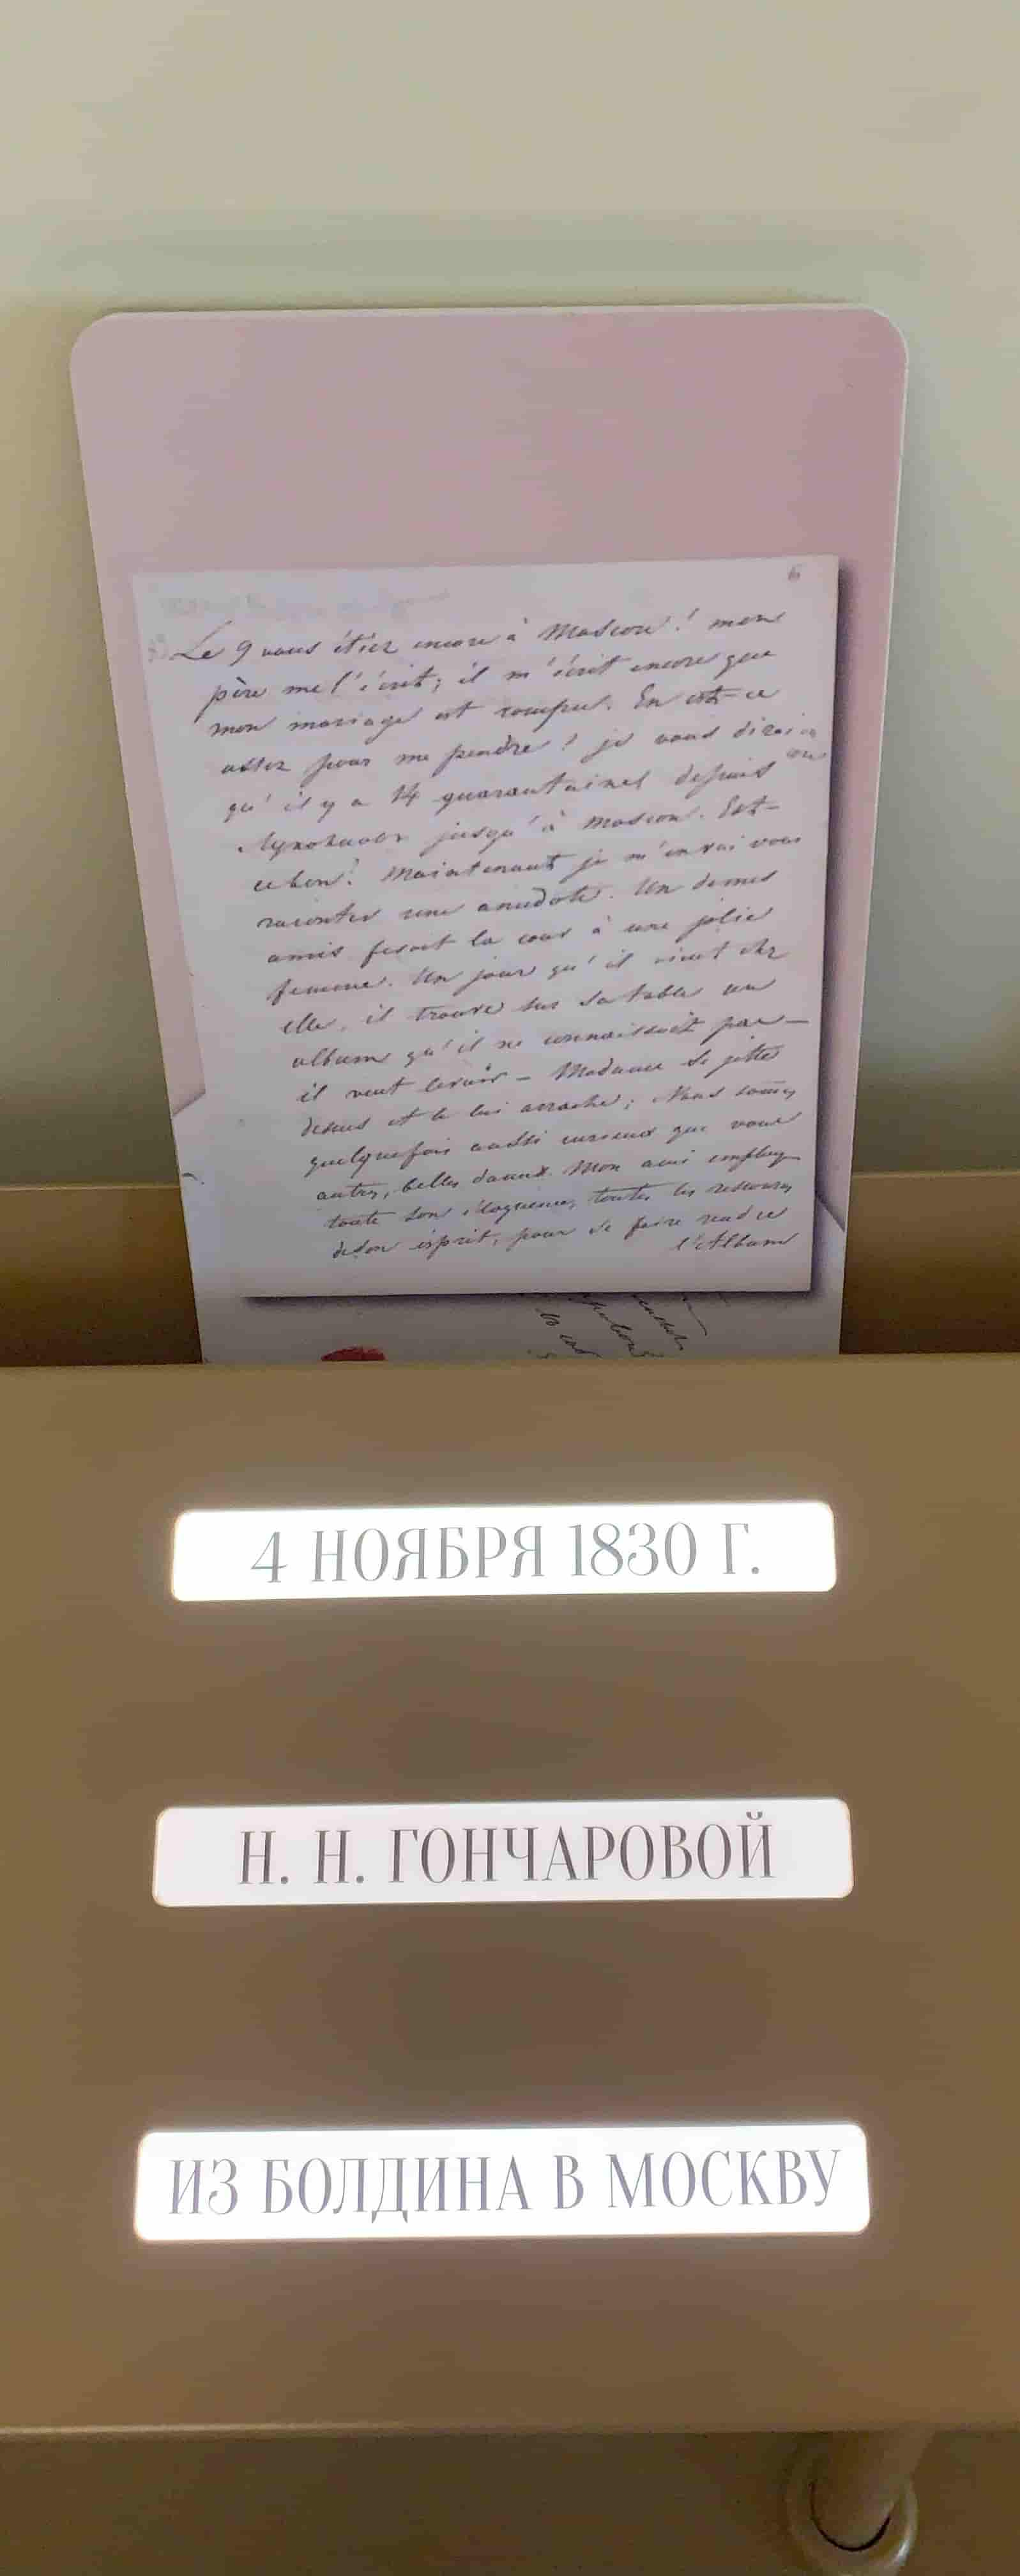 6
Le 9 vous étiez encore à Moscou! mon
père me l'écrit; il m'écrit encore que
mon mariage est rompu. En est-ce
assez pour me pendre? je vous dirai
qu'il y a 14 quarantaines depuis
Лукояновъ jusqu'à Moscou. Est-
ce bon? Maintenant je m'en vai vous
raconter une anecdote. Un de mes
amis fesait la cour à une jolie
femme. Un jour qu'il vient chez
elle, il trouve sur sa table un
album qu'il ne connaissait pas—
il veut le voir — Madame se jette
dessus et le lui arrache; Nous sommes
quelquefois aussi curieux que vous
autres, belles dames. Mon ami emploie
toute son éloquence, toutes les ressources
de son esprit, pour se faire rendre
l'Album
4 НОЯБРЯ 1830 Г.
Н. Н. ГОНЧАРОВОЙ
ИЗ БОЛДИНА В МОСКВУ